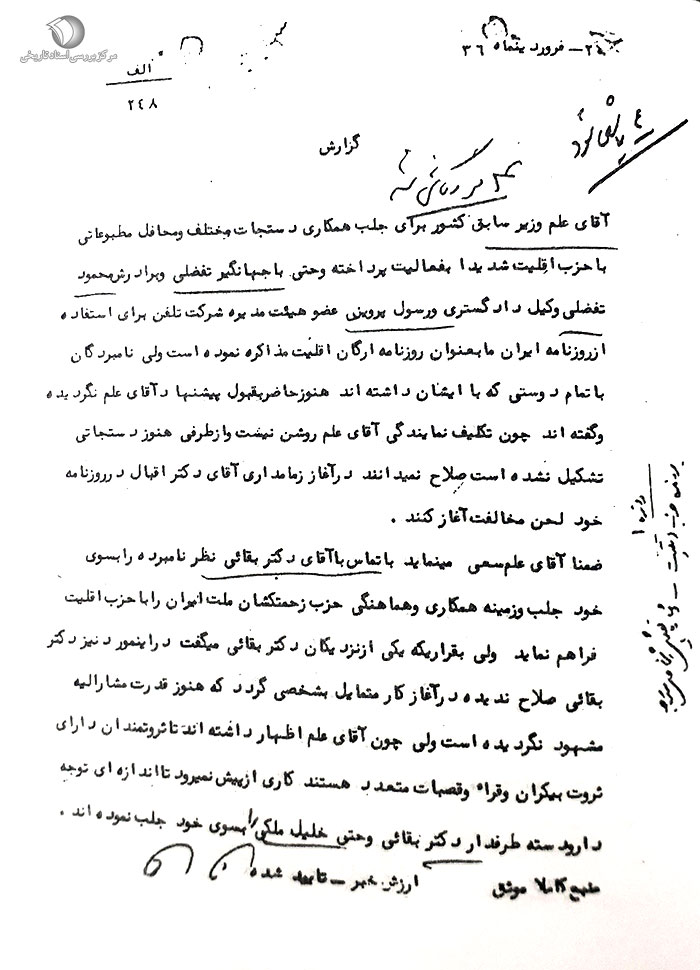 مرکز بررسی اسناد تاریخی
فروردینماه ۳۶
الف
۲٤۸
گزارش
آقای علم وزیر سابق کشور برای جلب همکاری دستجات مختلف ومحافل مطبوعاتی
با حزب اقلیت شدیدا بفعالیت پرداخته وحتی با جهانگیر تفضلی وبرادرش محمود
تفضلی وکیل دادگستری ورسول پرویزی عضو هیئت مدیره شرکت تلفن برای استفاده
از روزنامه ایران ما بعنوان روزنامه ارگان اقلیت مذاکره نموده است ولی نامبردگان
با تمام دوستی که با ایشان داشته اند هنوز حاضر بقبول پیشنهاد آقای علم نگردیده
وگفته اند چون تکلیف نمایندگی آقای علم روشن نیست وازطرفی هنوز دستجاتی
تشکیل نشده است صلاح نمیدانند درآغاز زمامداری آقای دکتر اقبال درروزنامه
خود لحن مخالفت آغاز کنند .
ضمنا آقای علم سعی مینماید با تماس با آقای دکتر بقائی نظر نامبرده را بسوی
خود جلب وزمینه همکاری وهماهنگی حزب زحمتکشان ملت ایران را با حزب اقلیت
فراهم نماید ولی بقراریکه یکی ازنزدیکان دکتر بقائی میگفت دراینمورد نیز دکتر
بقائی صلاح ندیده درآغاز کار متمایل بشخصی گردد که هنوز قدرت مشارالیه
مشهود نگردیده است ولی چون آقای علم اظهار داشته اند تا ثروتمندان دارای
ثروت بیکران وقراء وقصبات متعدد هستند کاری ازپیش نمیرود تا اندازه ای توجه
دارودسته طرفدار دکتر بقائی وحتی خلیل ملکی را بسوی خود جلب نموده اند .
منبع کاملا موثق ارزش خبر – تایید شده